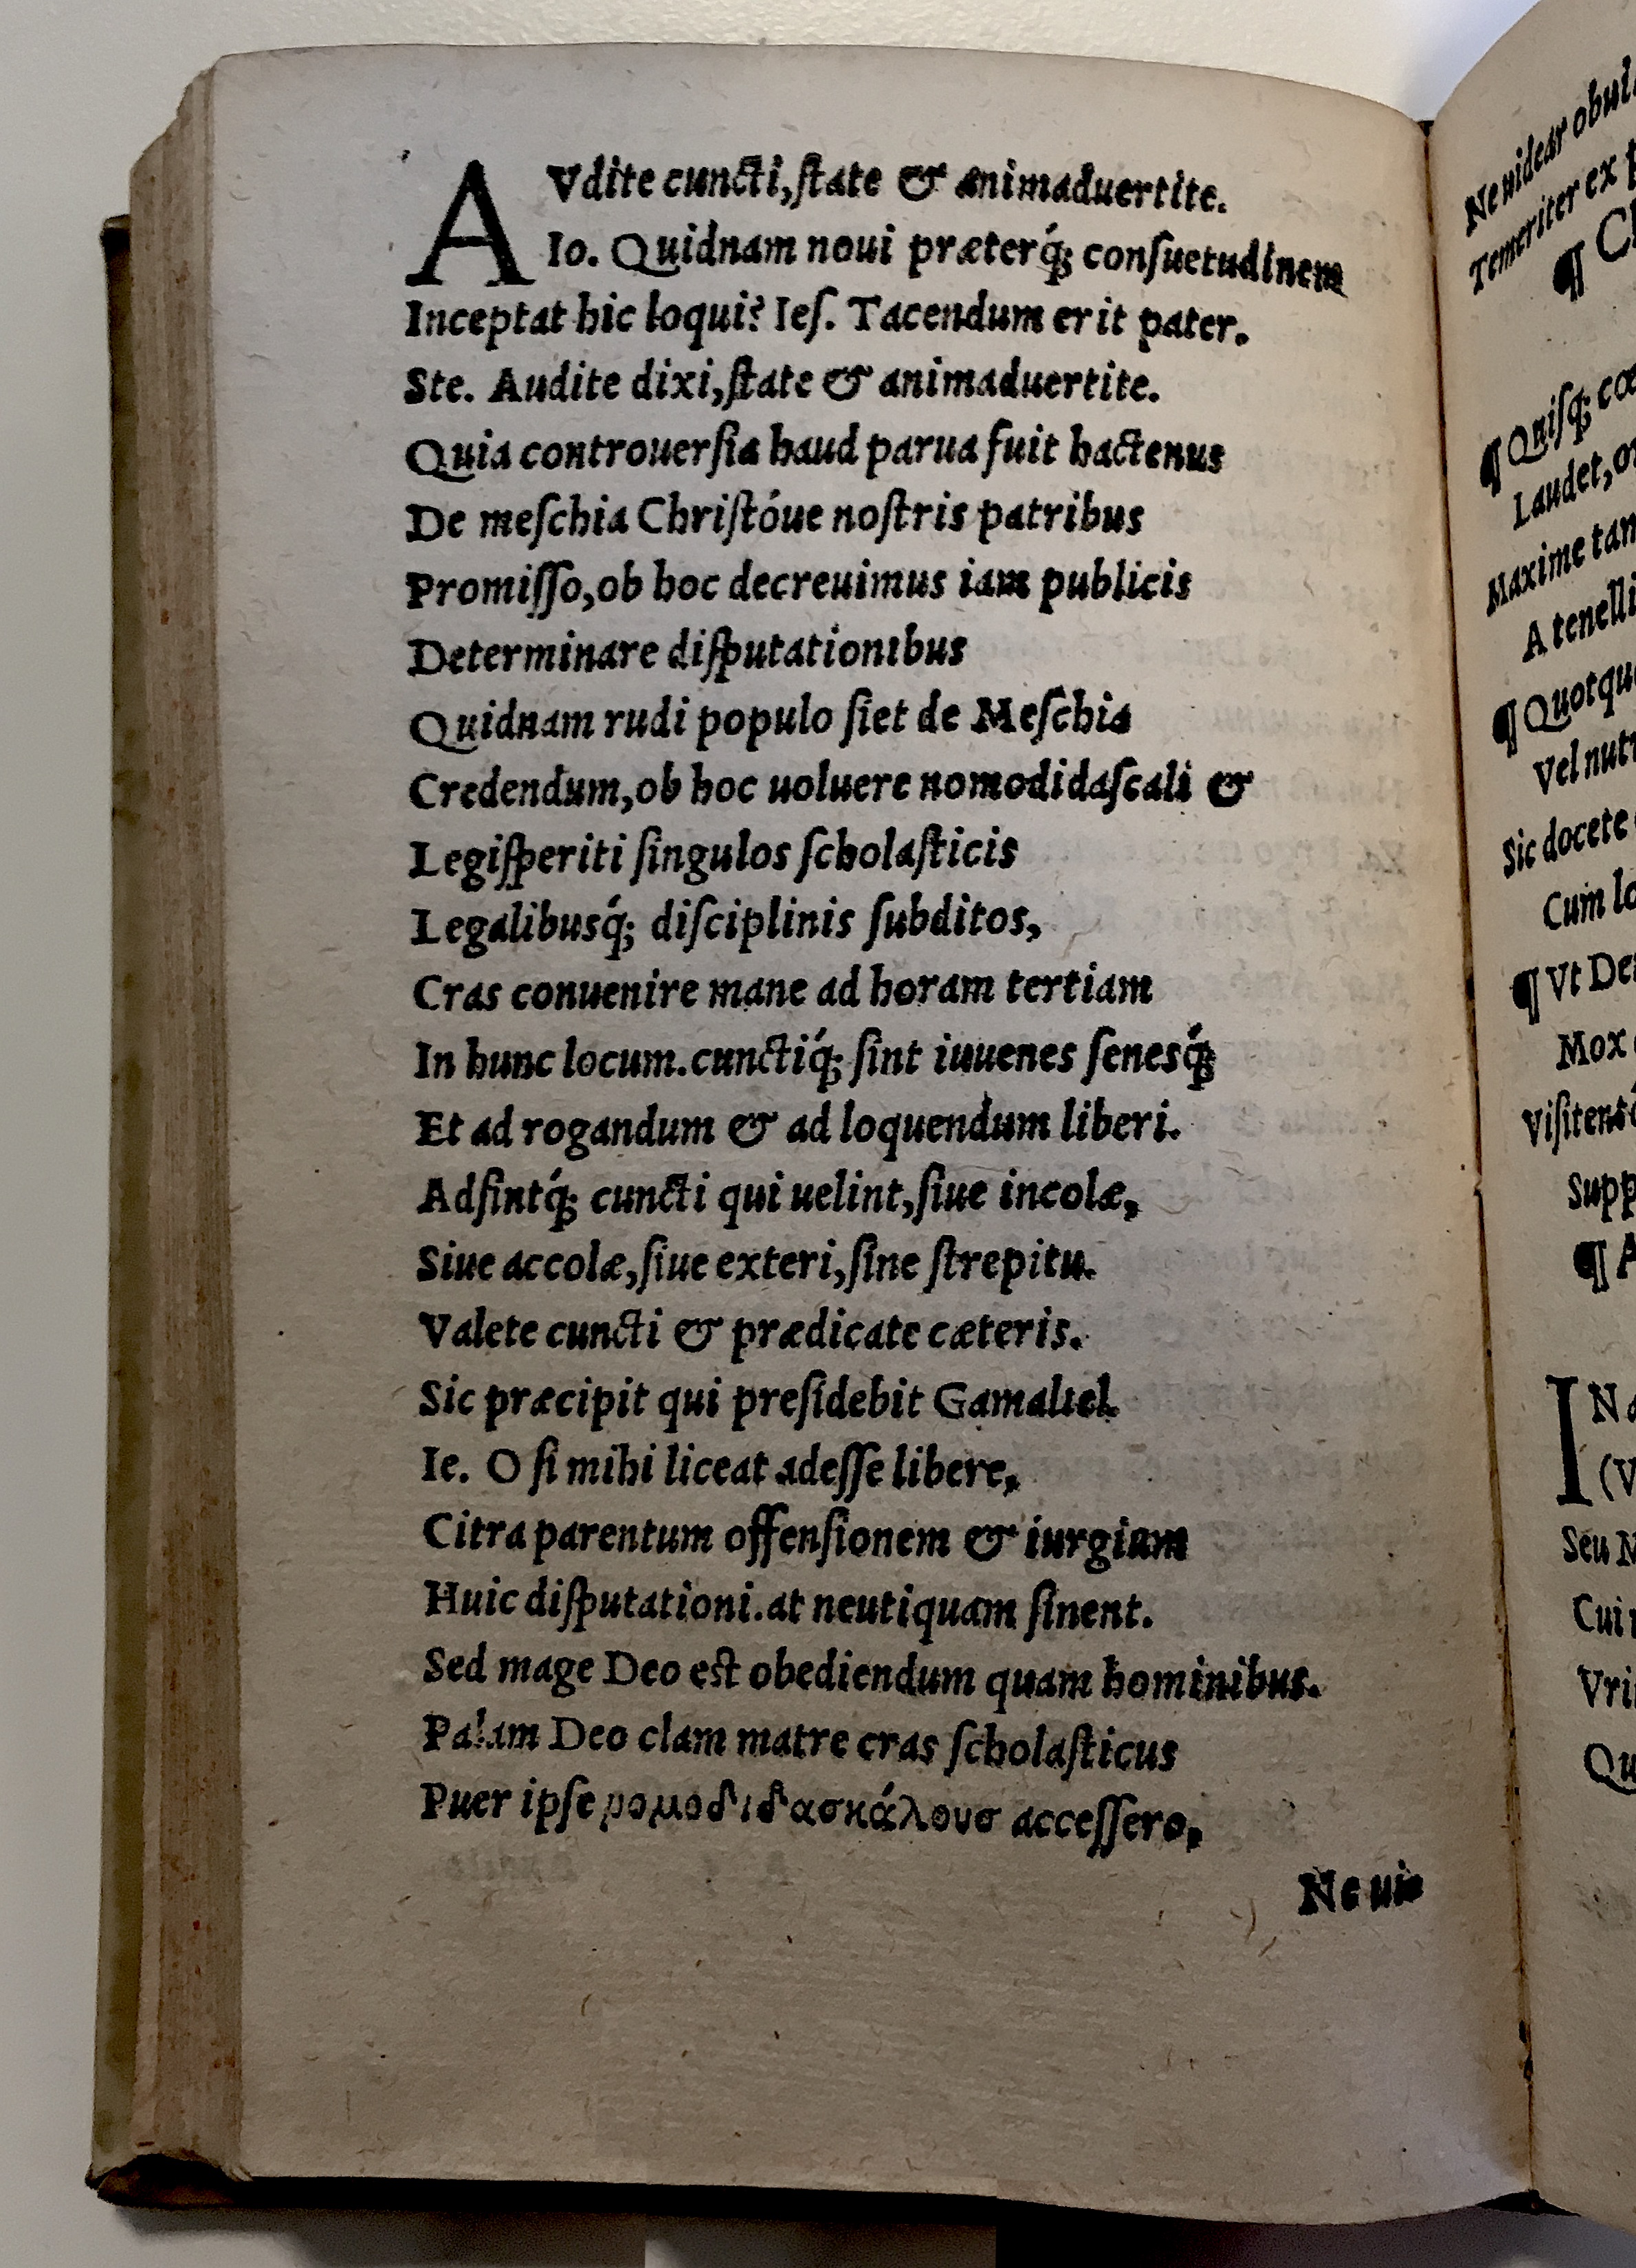 AVdite cuncti, ſtate & animaduertite.
Io. Quidnam noui præterq́; conſuetudinem
Inceptat hic loqui? Ieſ. Tacendum erit pater.
Ste. Audite dixi, ſtate & animaduertite.
Quia controuerſia haud parua fuit hactenus
De meſchia Chriſtóue noſtris patribus
Promiſſo, ob hoc decreuimus iam publicis
Determinare diſputationibus
Quidnam rudi populo ſiet de Meſchia
Credendum, ob hoc uoluere nomodidaſcali &
Legiſperiti ſingulos ſcholaſticis
Legalibusq́; diſciplinis ſubditos,
Cras conuenire mane ad horam tertiam
In hunc locum. cunctiq́; ſint iuuenes ſenesq́;
Et ad rogandum & ad loquendum liberi.
Adſintq́; cuncti qui uelint, ſiue incolæ,
Siue accolæ, ſiue exteri, ſine ſtrepitu.
Valete cuncti & prædicate cæteris.
Sic præcipit qui preſidebit Gamaliel.
Ie. O ſi mihi liceat adeſſe libere,
Citra parentum offenſionem & iurgium
Huic diſputationi. at neutiquam ſinent.
Sed mage Deo est obediendum quam hominibus.
Palam Deo clam matre cras ſcholaſticus
Puer ipſe νομοδιδασκάλουσ acceſſero,
Ne uie
Ne uidear
Temeriter ex
¶
¶ Quiſq́;
Laudet,
Maxime
A
¶
Vel
Sic docete
Cum
¶ Vt
Mox
¶
IN
(V
Seu